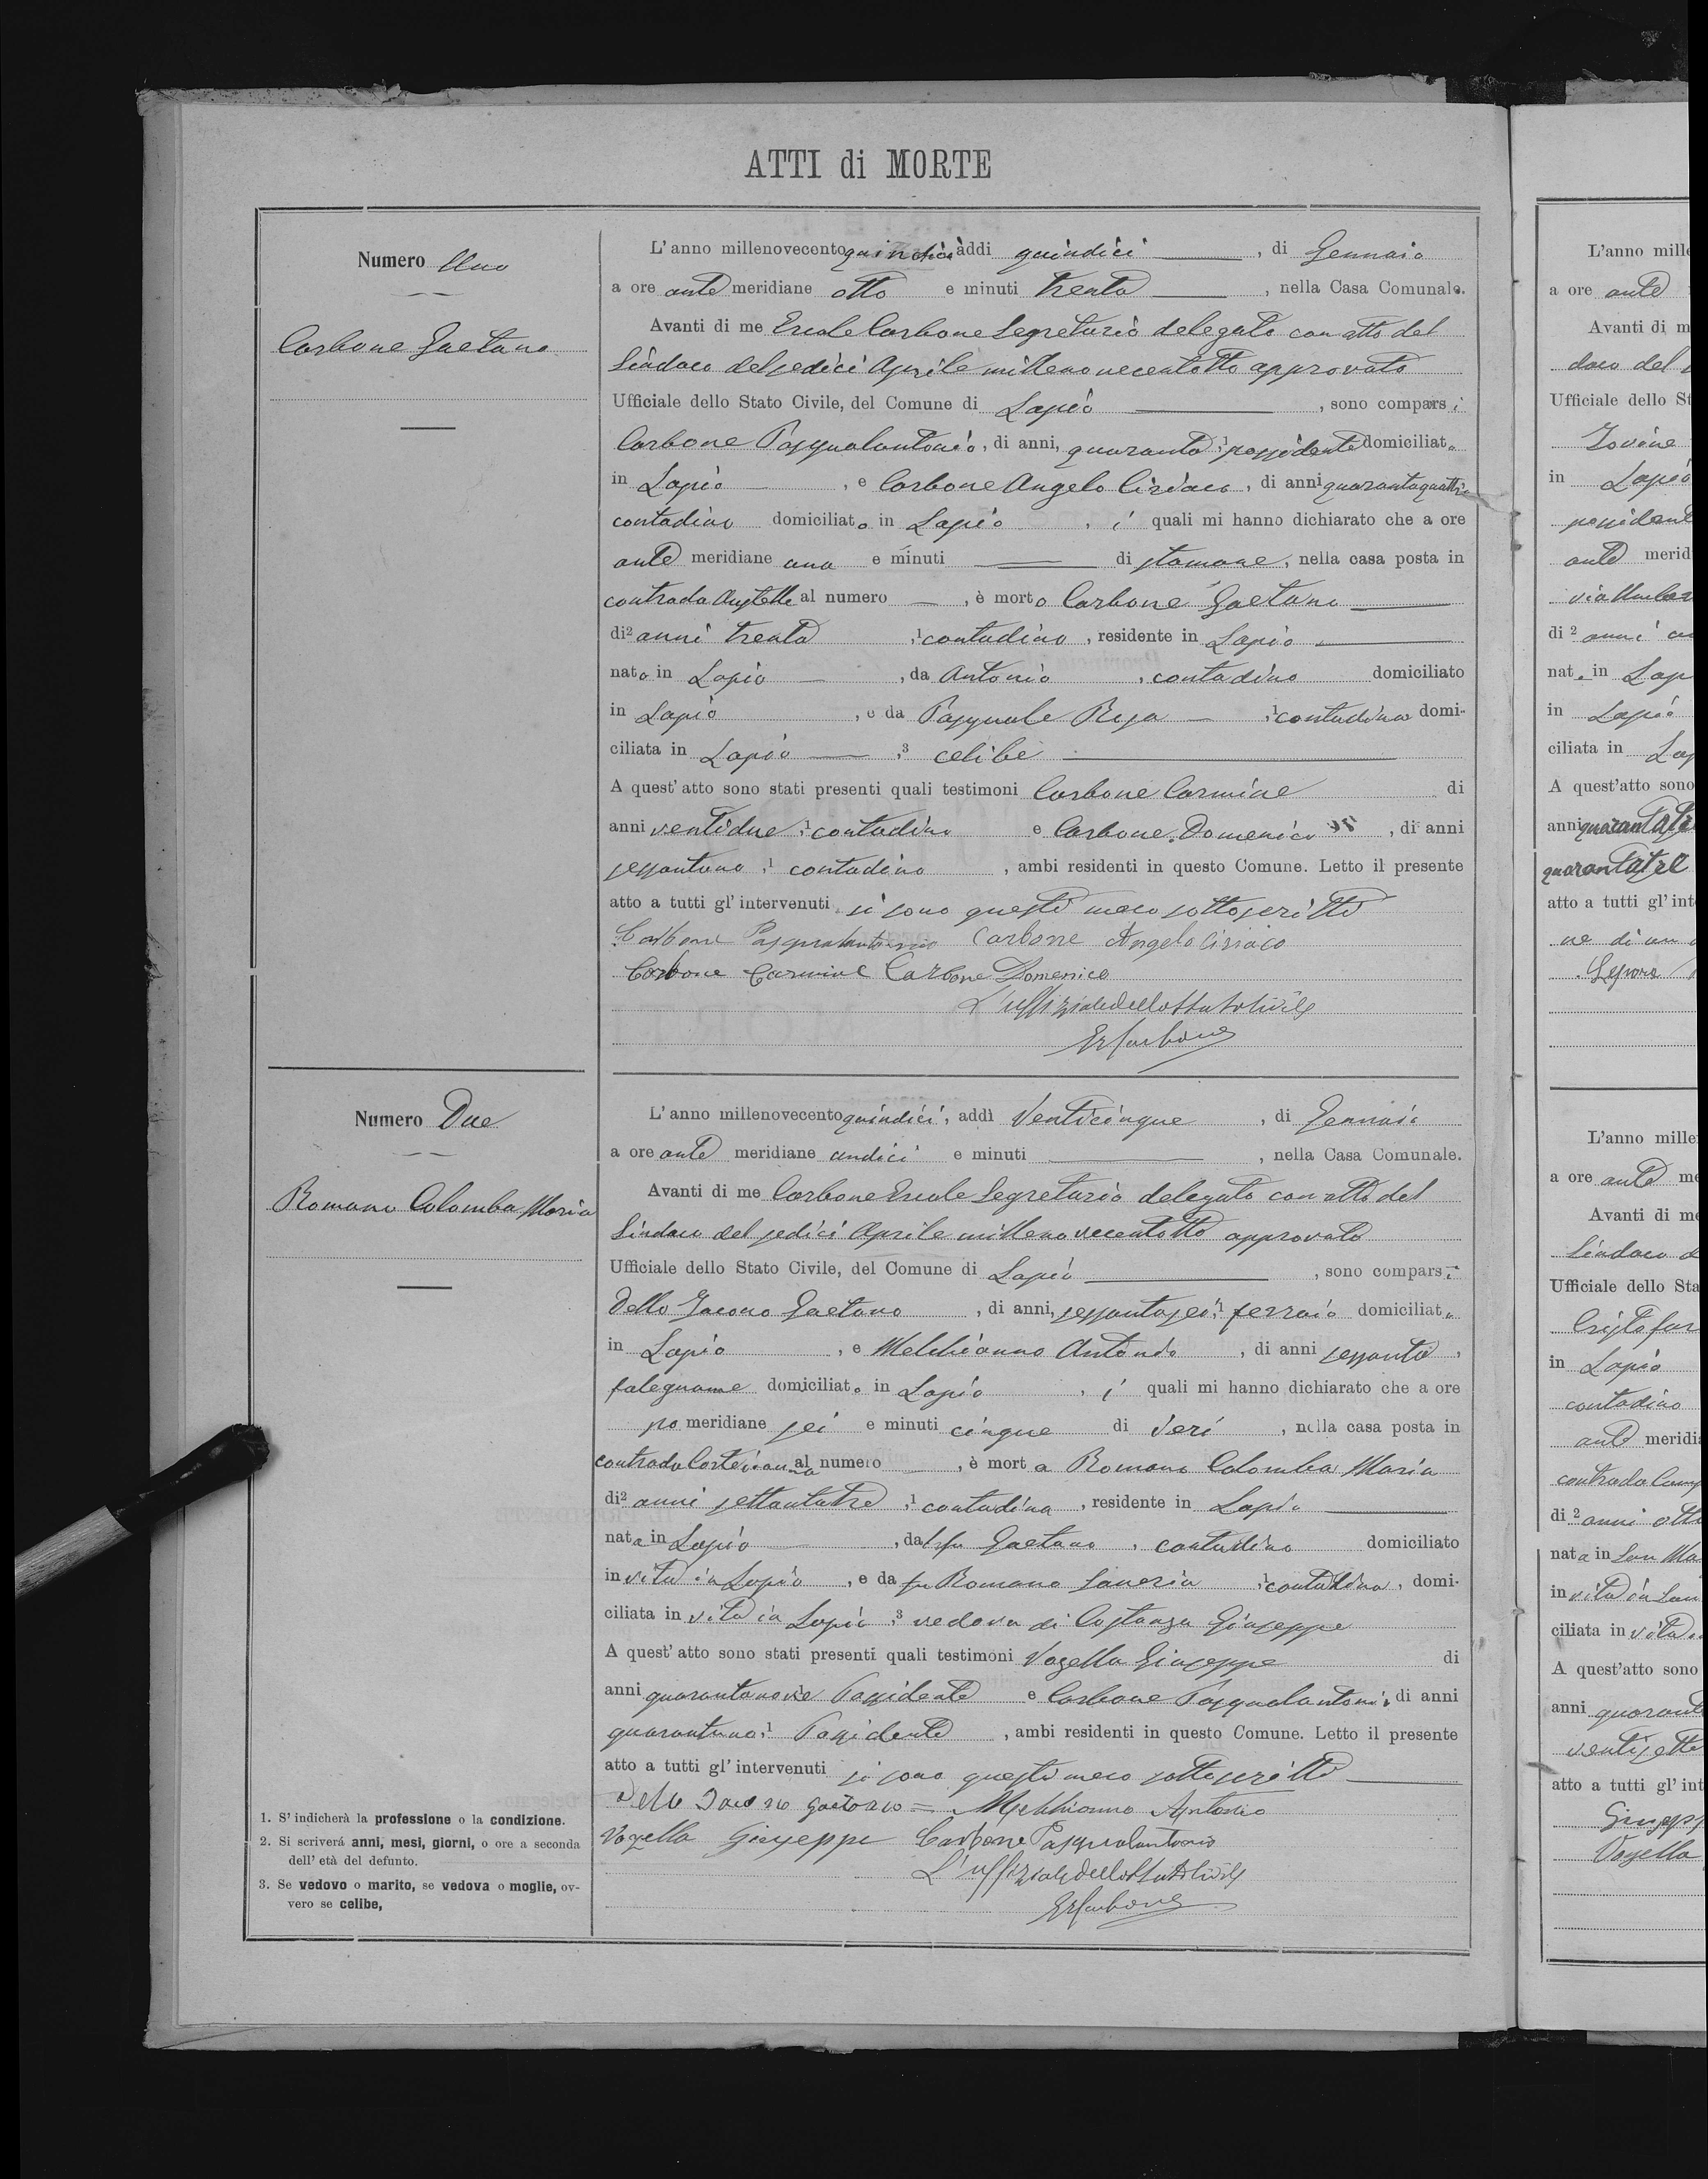 ATTI di MORTE
Numero Uno
Carbone Gaetano
L'anno millenovecentoquindici addi quindici, di Gennaio
a ore ante meridiane otto e minuti trenta, nella Casa Comunale.
Avanti di me Ercole Carbone Segretario delegato con atto del
Sindaco del sedici Aprile millenovecentotto approvato
Ufficiale dello Stato Civile, del Comune di Lapio, sono comparsi
Carbone Pasqualantonio, di anni, quaranta, 1 possidente domiciliato
in Lapio, e Carbone Angelo Ciriaco, di anni quarantaquattro
contadino domiciliato in Lapio, i quali mi hanno dichiarato che a ore
ante meridiane una e minuti di stamane, nella casa posta in
contrada al numero, è morto Carbone Gaetano
di 2 anni trenta, 1 contadino, residente in Lapio
nato in Lapio, da Antonio, contadino domiciliato
in Lapio, e da Pasquale Rosa, 1 contadina domi-
ciliata in Lapio, 3 celibe
A quest'atto sono stati presenti quali testimoni Carbone Carmine di
anni ventidue, 1 contadino e Carbone Domenico, di anni
sessantuno, 1 contadino, ambi residenti in questo Comune. Letto il presente
atto a tutti gl'intervenuti si sono questi meco sottoscritti
Carbone Pasqualantonio Carbone Angelo Ciriaco
Carbone Carmine Carbone Domenico
L'uffiziale dello Stato Civile
ErCarbone
Numero Due
Romano Colomba Maria
L'anno millenovecentoquindici, addì Venticinque, di Gennaio
a ore ante meridiane undici e minuti, nella Casa Comunale.
Avanti di me Carbone Ercole Segretario delegato con atto del
Sindaco del sedici Aprile millenovecentotto approvato
Ufficiale dello Stato Civile, del Comune di Lapio, sono comparsi
Dello Iacono Gaetano, di anni, sessantasei, 1 ferraio domiciliato
in Lapio, e Melchionno Antonio, di anni sessanta,
falegname domiciliato in Lapio, i quali mi hanno dichiarato che a ore
po meridiane sei e minuti cinque di ieri, nella casa posta in
contrada al numero, è morta Romano Colomba Maria
di 2 anni settantatre, 1 contadina, residente in Lapio
nata in Lapio, dal fu Gaetano, contadino domiciliato
in vita in Lapio, e da fu Romano Saveria, 1 contadina, domi-
ciliata in vita in Lapio, 3 vedova di Costanza Giuseppe
A quest'atto sono stati presenti quali testimoni Vozella Giuseppe di
anni quarantanove 1 Possidente e Carbone Pasqualantonio, di anni
quarantuno, 1 Possidente, ambi residenti in questo Comune. Letto il presente
atto a tutti gl'intervenuti si sono questi meco sottoscritti
Dello Iacono Gaetano = Melchionno Antonio
Vozella Giuseppe Carbone Pasqualantonio
L'uffiziale dello Stato Civile
ErCarbone
1. S'indicherà la professione o la condizione.
2. Si scriverá anni, mesi, giorni, o ore a seconda
dell'età del defunto.
3. Se vedovo o marito, se vedova o moglie, ov-
vero se celibe,
L'anno mille
a ore ante
Avanti di m
daco del
Ufficiale dello St
Iovine
in Lapio
possident
ante merid
via Umber
di 2 anni
nat. in Lap
in Lapio
ciliata in Lap
A quest'atto sono
anni
quarantatre
atto a tutti gl'int
L'anno mille
a ore ante me
Avanti di me
Sindaco d
Ufficiale dello Sta
Cristofar
in Lapio
contadino
ante meridia
contrada Camp
di 2 anni otto
nata in San Ma
in vita in San
ciliata in vita
A quest'atto sono
anni quarant
ventisette
atto a tutti gl'int
Giusepp
Vozella